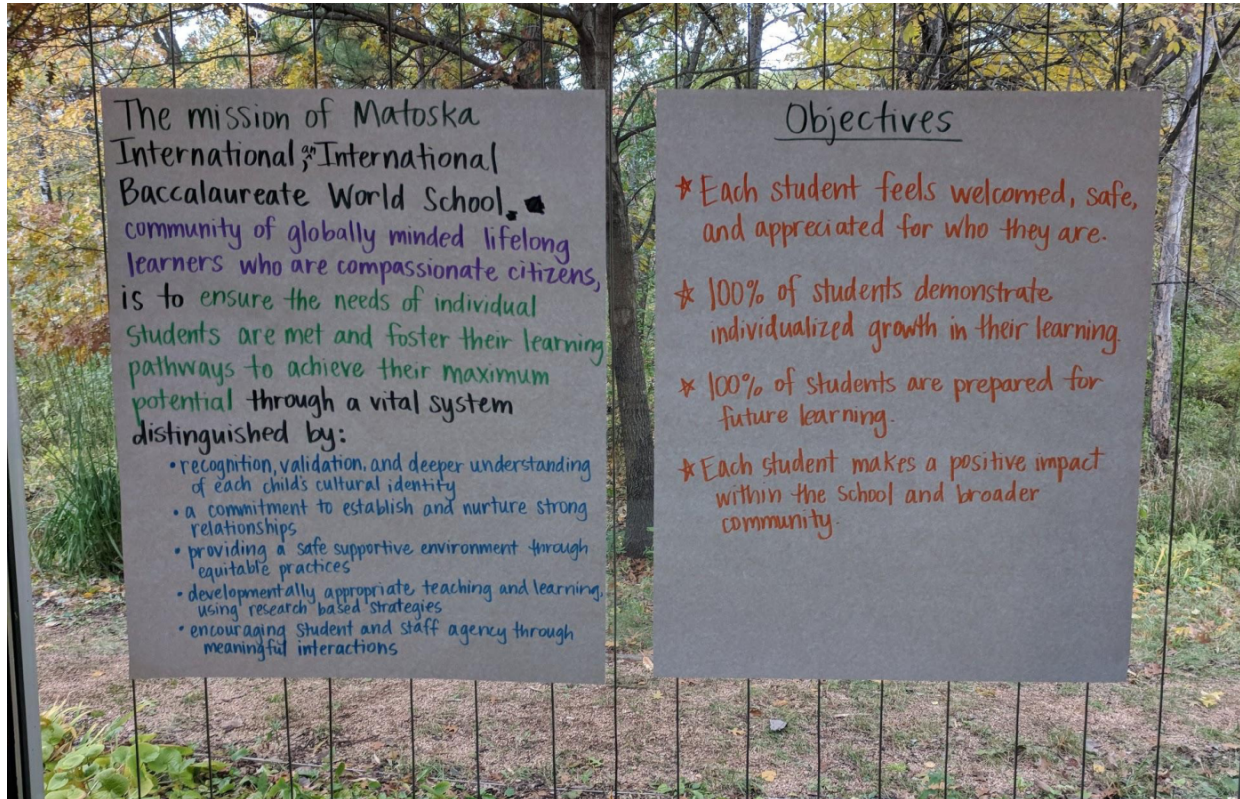 The mission of Matoska
International, an International
Baccalaureate World School,
community of globally minded lifelong
learners who are compassionate citizens,
is to ensure the needs of individual
students are met and foster their learning
pathways to achieve their maximum
potential through a vital system
distinguished by:
• recognition, validation, and deeper understanding
of each child's cultural identity
• a commitment to establish and nurture strong
relationships
• providing a safe supportive environment through
equitable practices
• developmentally appropriate teaching and learning,
using research based strategies
• encouraging student and staff agency through
meaningful interactions
Objectives
☆ Each student feels welcomed, safe,
and appreciated for who they are.
☆ 100% of students demonstrate
individualized growth in their learning.
☆ 100% of students are prepared for
future learning.
☆ Each student makes a positive impact
within the school and broader
community.